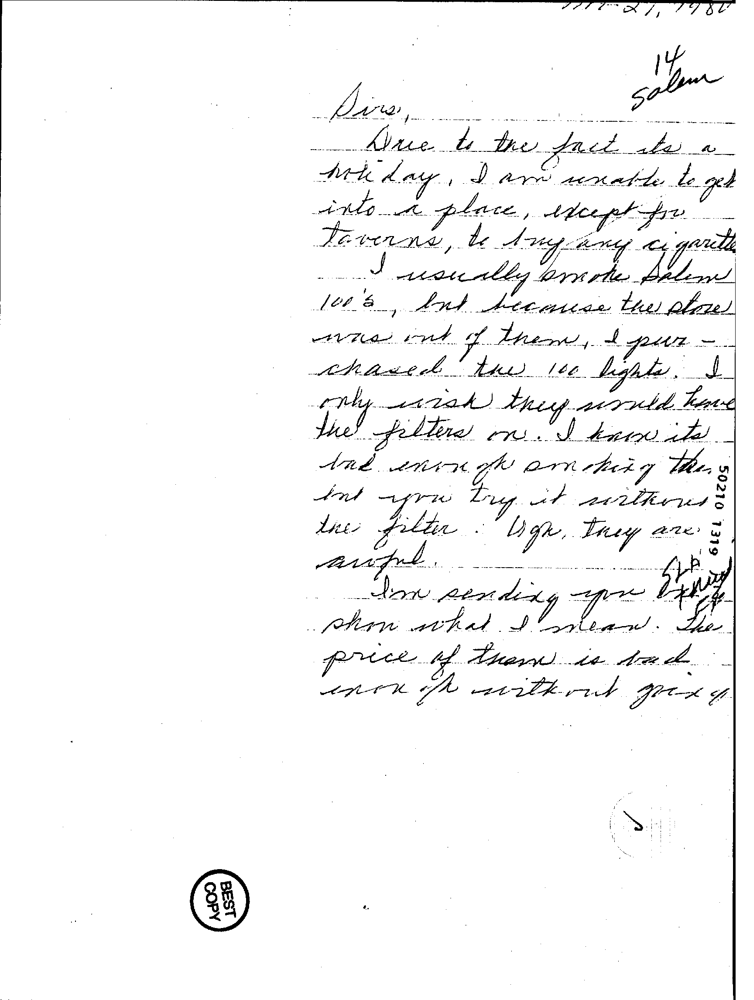 27, 1980
14
Salem
Sirs,
Due to the fact its a
holiday, I am unable to get
into a place, except for
taverns, to buy any cigarette
I usually smoke Salem
100's, but because the store
was out of them, I pur-
chased the 100 lights. I
only wish they would have
the filters on. I know its
bad enough smoking
but you try it without
the filter. Ugh, they are
awful.
I'm sending you
show what I mean. The
price of them is bad
enough without
50210 1319
BEST
COPY